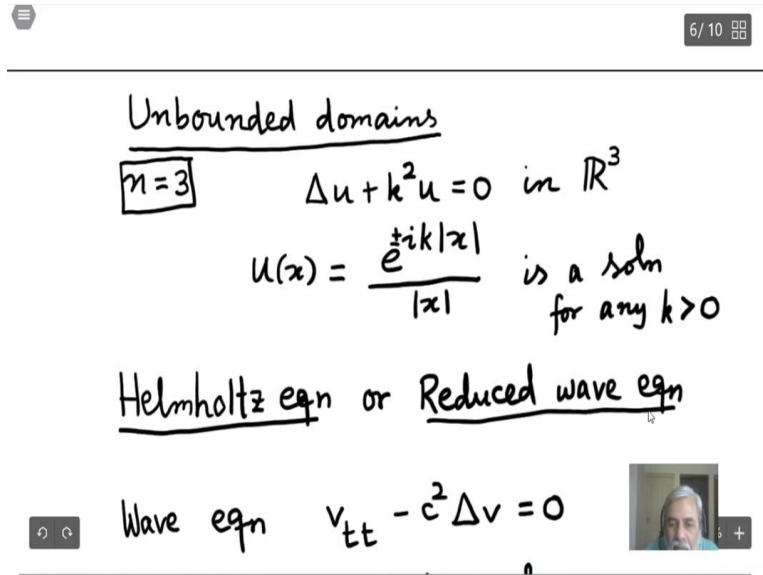 6/10
Unbounded domains
n=3 Δu + k²u = 0 in ℝ³
u(x) = e^{±ik|x|} / |x| is a soln
for any k>0
Helmholtz eqn or Reduced wave eqn
Wave eqn v_{tt} - c²Δv = 0